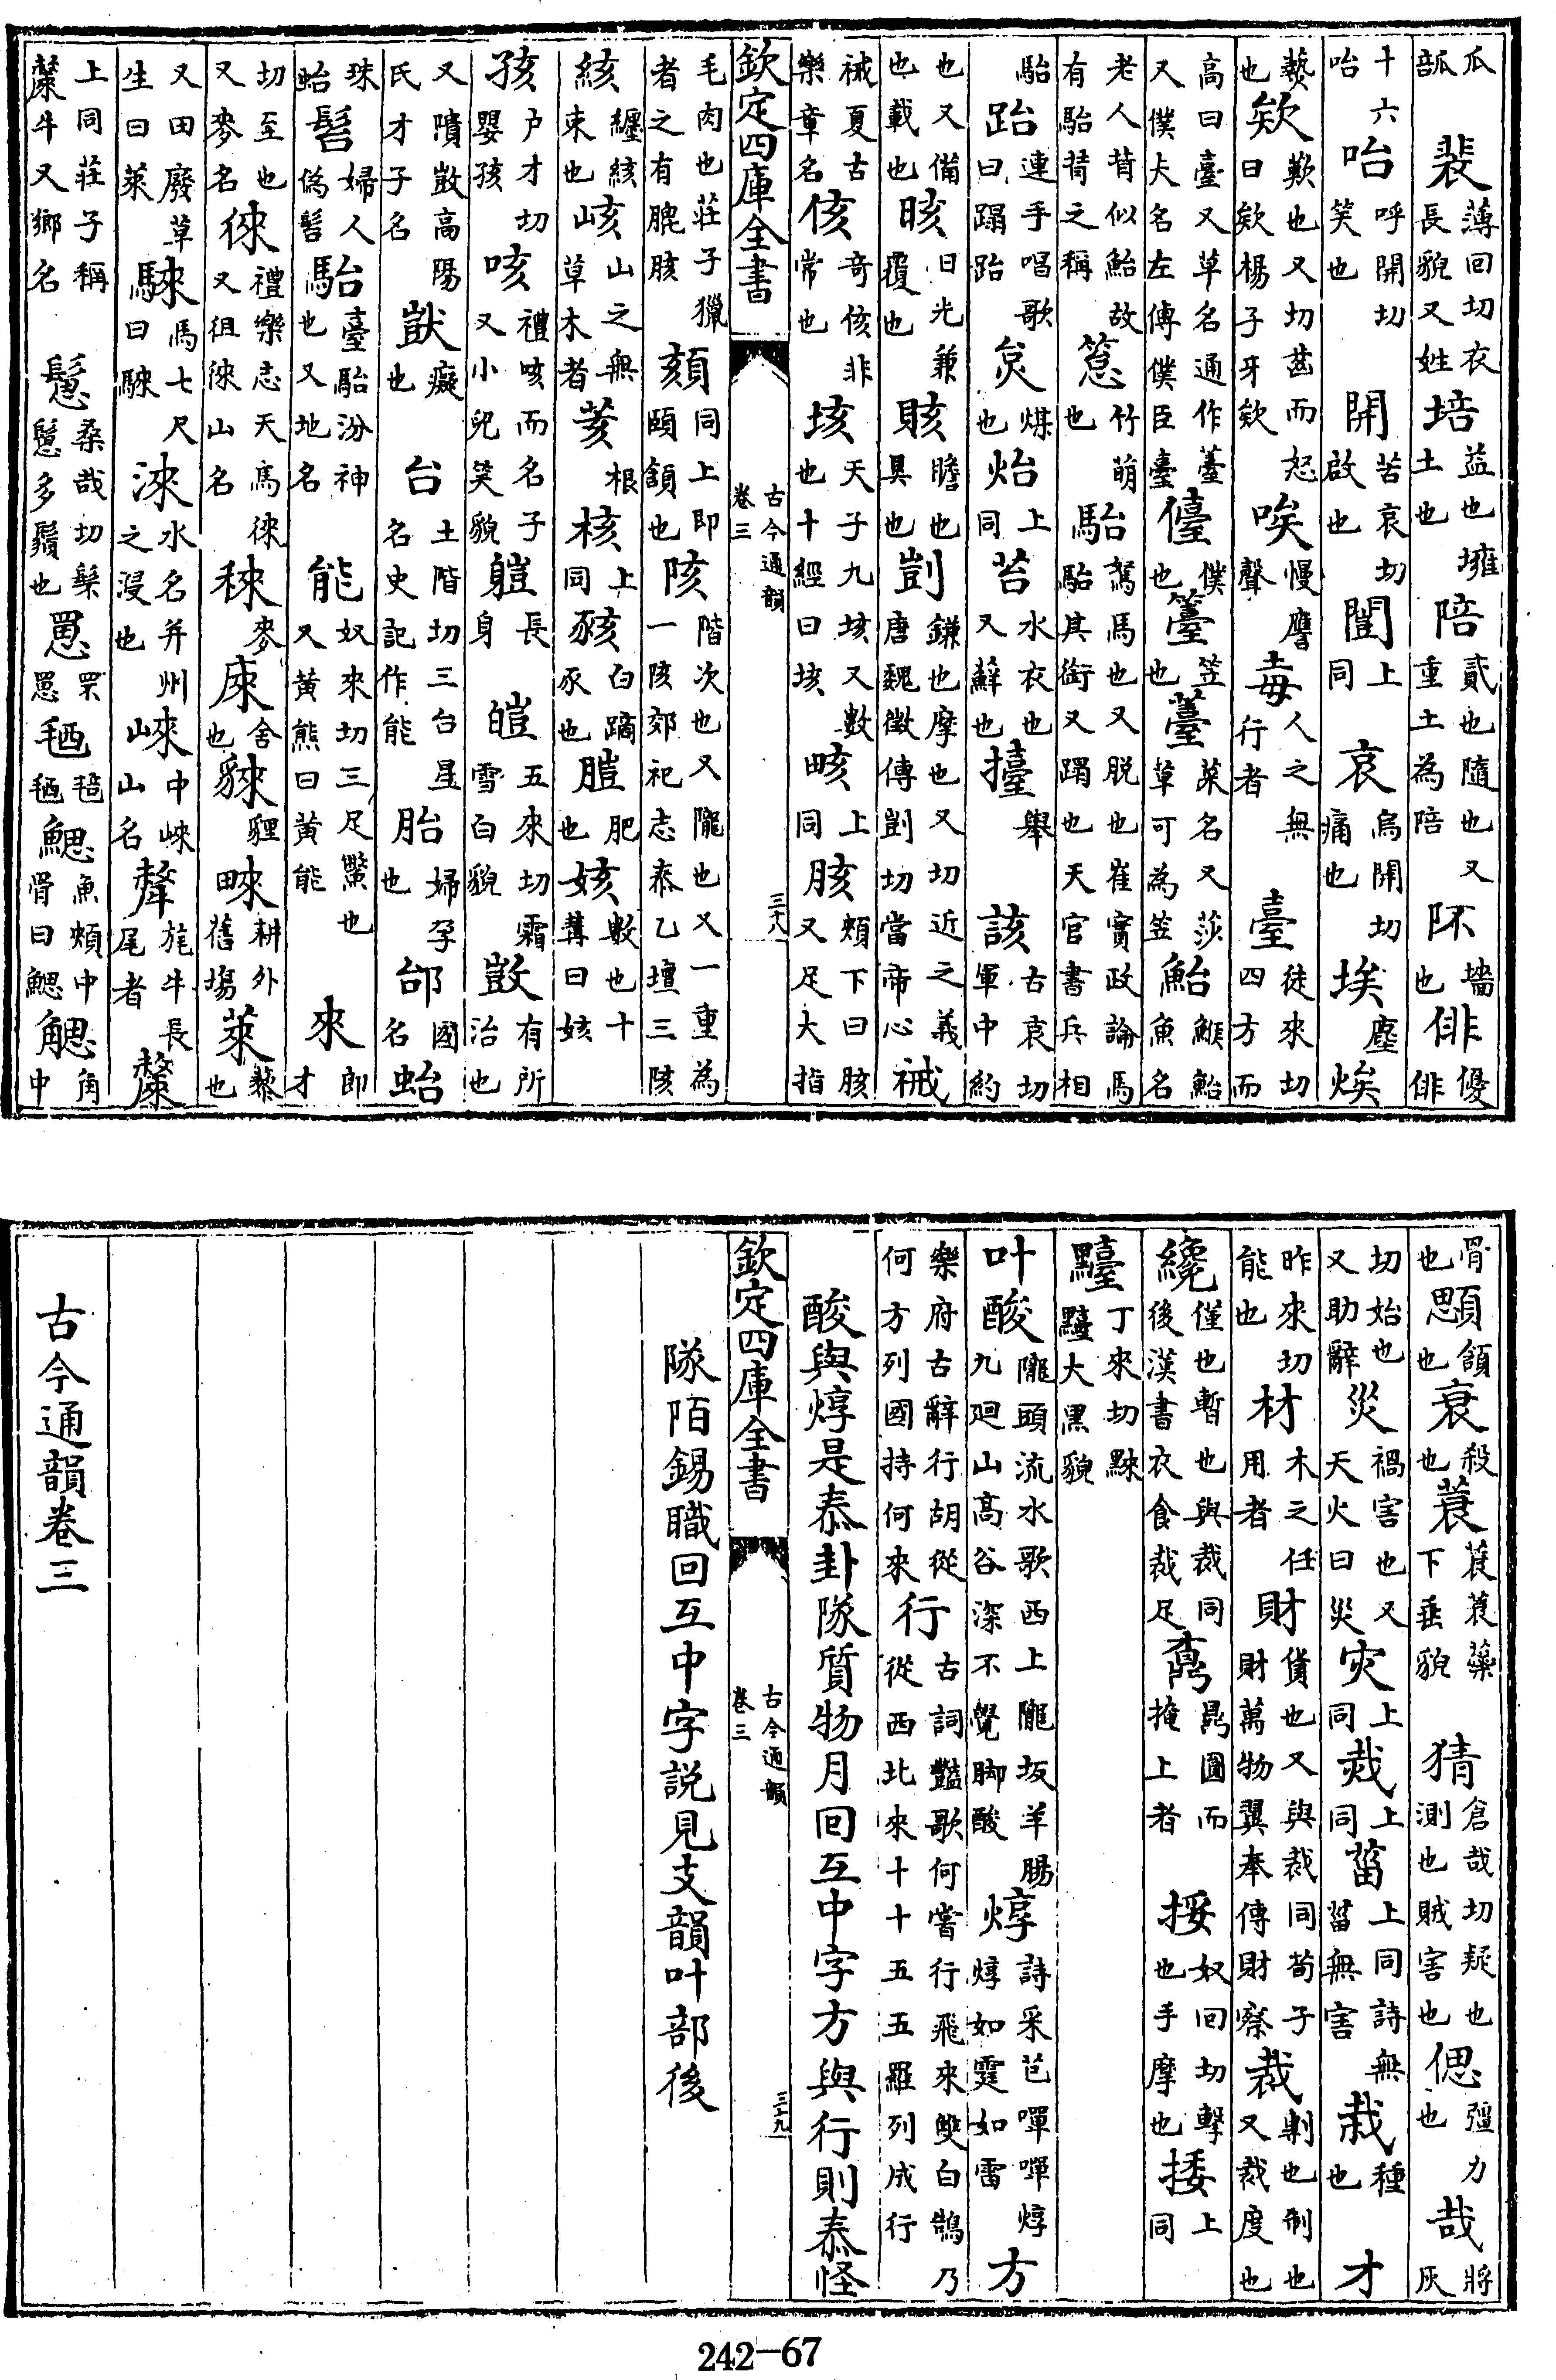 瓜瓿裴薄回切衣長貌又姓培益也壅土也陪貳也隨也又重土為陪阫墻也俳優俳
十六咍咍呼開切笑也開苦哀切啟也闓上同哀烏開切痛也埃塵埃
藝也欸歎也又切甚而怒曰欸楊子牙欸唉慢譍聲毐人之無行者臺徒來切四方而
高曰臺又草名通作薹又僕夫名左傳僕臣臺儓僕也籉笠也薹菜名又莎草可為笠鮐鯸鮐魚名
老人背似鮐故有駘背之稱箈竹萌也駘駑馬也又脱也崔寔政論馬駘其銜又躅也天官書兵相
駘跆連手唱歌曰蹋跆炱煤也炲上同苔水衣也又蘚也擡舉該古哀切軍中約
也又備也載也晐日光兼覆也賅贍也具也剴鎌也摩也又切近之義唐魏徵傳剴切當帝心祴
祴夏古樂章名侅奇侅非常也垓天子九垓又數也十經曰垓畡上同胲頰下曰胲又足大指
欽定四庫全書 古今通韻 卷三 三十八
毛肉也莊子獵者之有膍胲頦同上即頤頷也陔階次也又隴也又一重為一陔郊祀志泰乙壇三陔
絯纏絯束也峐山之無草木者荄根核上同豥白蹢豕也䐩肥也姟數也十冓曰姟
孩户才切嬰孩咳禮咳而名子又小兒笑貌䠽長身皚五來切霜雪白貌敳有所治也
又隤敳高陽氏才子名㱯癡也台土階切三台星名史記作能胎婦孕也邰國名蛤
珠蛤髫婦人偽髻駘臺駘汾神也又地名能奴來切三足鱉也又黄熊曰黄能來郎才
切至也又麥名徠禮樂志天馬徠又徂徠山名秾麥庲舍也貅貍䅘耕外舊場萊藜也
又田廢草生曰萊騋馬七尺曰騋淶水名并州之浸也崍中崍山名犛旄牛長尾者斄
上同莊子稱斄牛又鄉名鬛桑哉切髤鬛多鬚也罳罘罳毸毰毸鰓魚頰中骨曰鰓䚡角中
骨也顋頷也衰殺也蓑蓑蓑蘂下垂貌猜倉哉切疑也測也賊害也偲彊力也哉將灰
切始也又助辭也災禍害也又天火曰災灾上同烖上同菑上同詩無菑無害栽種也才
昨來切能也材木之任用者財貨也又與裁同荀子財萬物翼奉傳財察裁剸也制也又裁度也
纔僅也暫也與裁同後漢書衣食裁足鼒鼎圓而掩上者挼奴回切擊也手摩也捼上同
䵝丁來切䵎䵝大黒貌
叶酸隴頭流水歌西上隴坂羊腸九廻山髙谷深不覺脚酸焞詩采芑嘽嘽焞焞如霆如雷方
樂府古辭行行胡從何方列國持何來行古詞豔歌何嘗行飛來雙白鵠乃從西北來十十五五羅列成行
酸與焞是泰卦隊質物月回互中字方與行則泰怪
欽定四庫全書 古今通韻 卷三 三十九
隊陌錫職回互中字説見支韻叶部後
古今通韻卷三
242-67